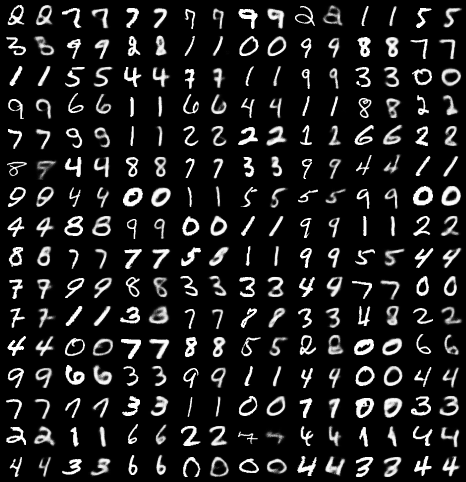 2 2 7 7 7 7 7 7 9 9 2 2 1 1 5 5
3 3 9 9 2 8 1 1 0 0 9 9 8 8 7 7
1 1 5 5 4 4 7 7 1 1 9 9 3 3 0 0
9 9 6 6 1 1 6 6 4 4 1 1 8 8 2 2
7 7 9 9 1 1 2 2 2 2 1 2 6 6 2 2
8 9 4 4 8 8 7 7 3 3 9 9 4 4 1 1
0 0 4 4 0 0 1 1 5 5 5 5 9 9 0 0
4 4 8 8 9 9 0 0 1 1 9 9 1 1 2 2
8 8 7 7 7 7 5 5 1 1 9 9 5 5 4 4
7 7 9 9 8 8 3 3 3 3 4 9 7 7 0 0
7 7 1 1 3 3 7 7 8 8 3 3 4 8 2 2
4 4 0 0 7 7 8 8 5 5 2 2 0 0 6 6
9 9 6 6 3 3 9 9 1 1 4 4 0 0 4 4
7 7 7 7 3 3 1 1 0 0 7 7 0 0 3 3
2 2 1 1 6 6 2 2 7 7 4 4 1 1 4 4
4 4 3 3 6 6 0 0 0 0 4 4 3 3 4 4